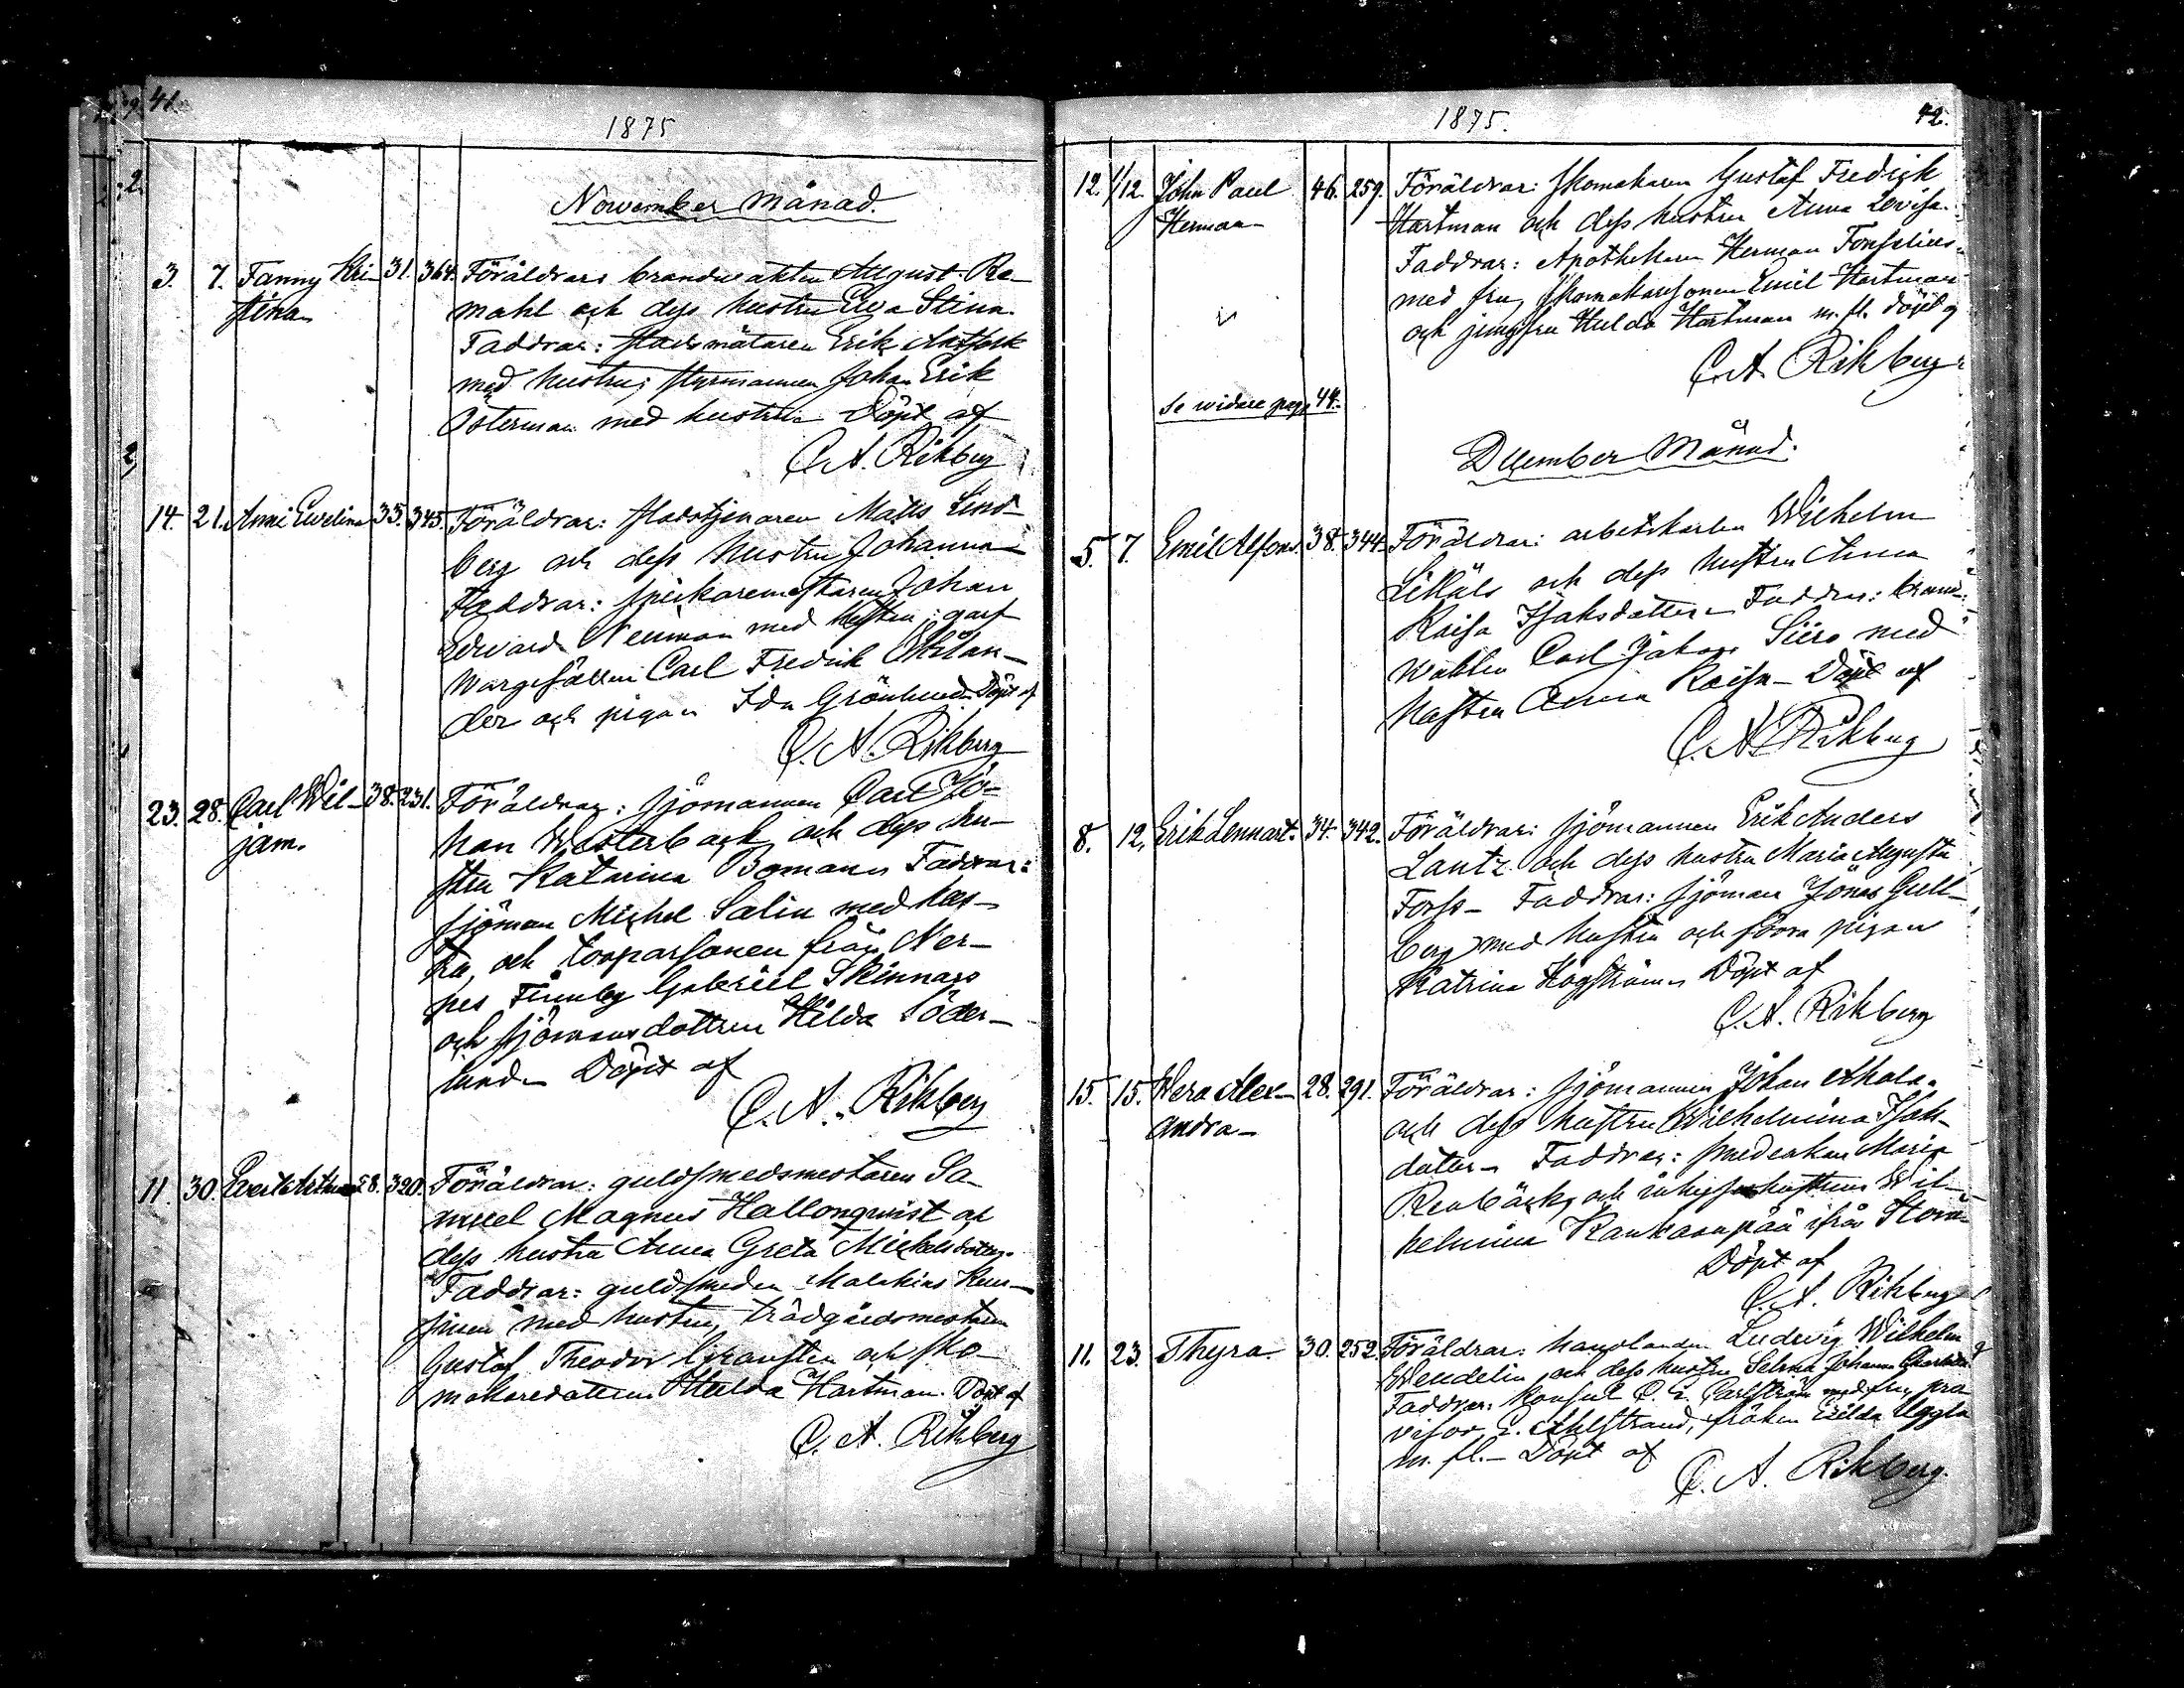 41.
1875
November Månad.
3. 7. Fanny Kri- 31. 364. Föräldrar: brandwakten August Re-
stina mahl och dess hustru Ewa Stina.
Faddrar: stadsmätaren Erik
med hustru, styrmannen Johan Erik
Österman med hustru Döpt af
C. A. Rikberg
14. 21. Anni Ewelina 35. 345. Föräldrar: stadstjenaren Matts Lind-
berg och dess hustru Johanna
Faddrar: Johan
Edward Neuman med hustru, garf-
waregesällen Carl Fredrik Ohlan-
der och pigan Ida Grönlund Döpt af
C. A. Rikberg
23. 28. Carl Wil- 38. 231. Föräldrar: sjömannen Carl Jo-
jam. han Westerback och dess hu-
stru Katarina Boman Faddrar:
sjöman Michel Salin med hus-
tru, och torparsonen från Ner-
pes Finnby Gabriel Skinnars
och sjömansdottren Hilda Söder-
lund Döpt af
C. A. Rikberg
11. 30. Evert Arthur 58. 320. Föräldrar: guldsmedsmestaren Sa-
muel Magnus Hallonqwist och
dess hustru Anna Greta Michelsdotter.
Faddrar: guldsmeden Malakias
med hustru, trädgårdsmestaren
Gustaf Theodor Gransten och sko-
makaredottren Hulda Hartman. Döpt af
C. A. Rikberg
1875.
42.
12. 1/12. John Paul 46. 259. Föräldrar: skomakaren Gustaf Fredrik
Herman Hartman och dess hustru Anna Lovisa.
Faddrar: Apothekaren Herman Tonselius
med fru, skomakarsonen Emil Hartman
och jungfru Hulda Hartman m. fl. döpt af
C. A. Rikberg
se widare pag. 44.
December Månad.
5. 7. Emil Alfons. 38. 344. Föräldrar: arbetskarlen Wilhelm
Lilläls och dess hustru Anna
Kaisa Isaksdotter - Faddrar: brand-
wakten Carl Jakob Siiro med
hustru Anna Kaisa - Döpt af
C. A. Rikberg
8. 12. Erik Lennart. 34. 342. Föräldrar: sjömannen Erik Anders
Lantz och dess hustru Maria Augusta
Forss - Faddrar: sjöman Jonas Gull-
berg med hustru och förra pigan
Katrina Högström Döpt af
C. A. Rikberg
15. 15. Wera Alex- 28. 291. Föräldrar: sjömannen Johan Ahola
andra - och dess hustru Wilhelmina Isak-
dotter - Faddrar: smedenkan Maria
Renbäck, och inhyseshustrun Wil-
helmina Kankaanpää ifrån Stora
Döpt af
C. A. Rikberg
11. 23. Thyra. 30. 252. Föräldrar: handlanden Ludwig Wilhelm
Wendelin och dess hustru Selma Johanna Charlotta
Faddrar: Konsul C. G. Carlström med fru, pro-
visor E. Ahlstrand, fröken Hilda Uggla
m. fl. - Döpt af
C. A. Rikberg.